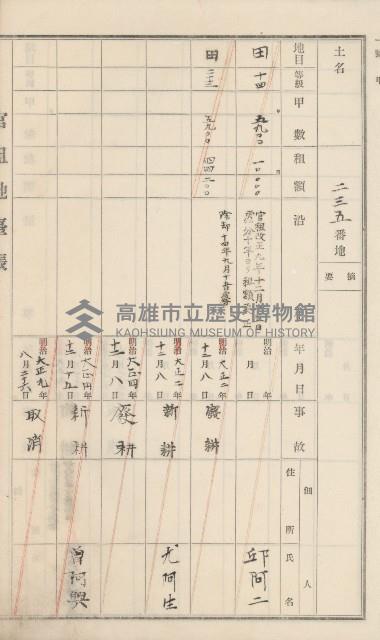 土名
二三五番地
摘要
地目
等級
甲數
租額
沿
年月日
事故
佃人
住所
氏名
田
十四
五九〇〇
一〇〇〇〇〇
官租改正九年十二月
除却
明治
年
月
日
邱阿二
田
二三
五九〇〇
四四二〇〇
明治大正二年
十二月八日
廢耕
明治大正二年
十二月八日
新耕
尤阿生
明治大正四年
十二月八日
廢耕
明治大正四年
十二月十五日
新耕
曾阿興
明治大正九年
八月二六日
取消
官租地臺帳
高雄市立歷史博物館
KAOHSIUNG MUSEUM OF HISTORY